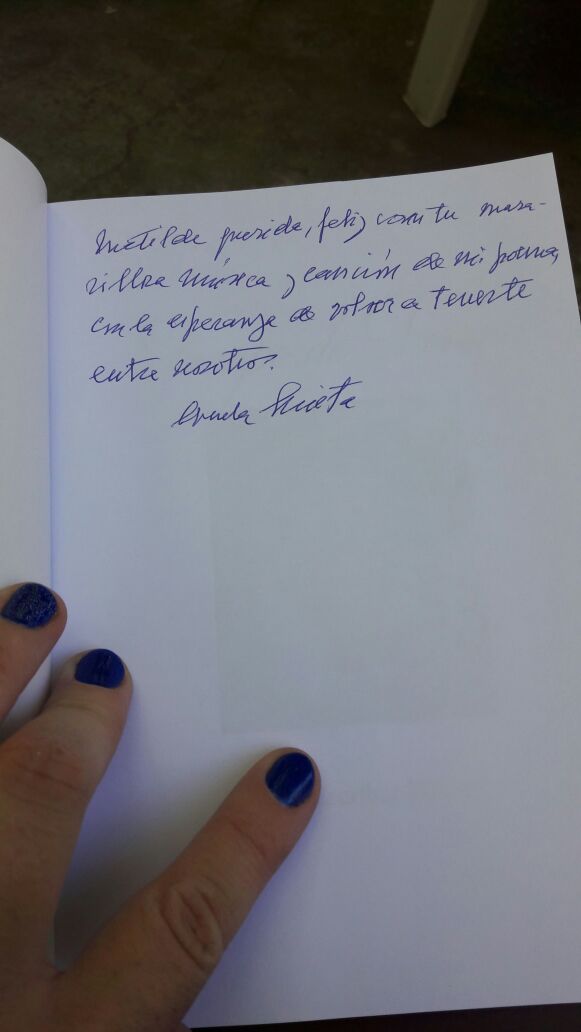 Matilde querida, feliz con tu mara-
villosa música y canción de mi poema,
con la esperanza de volver a tenerte
entre nosotros.